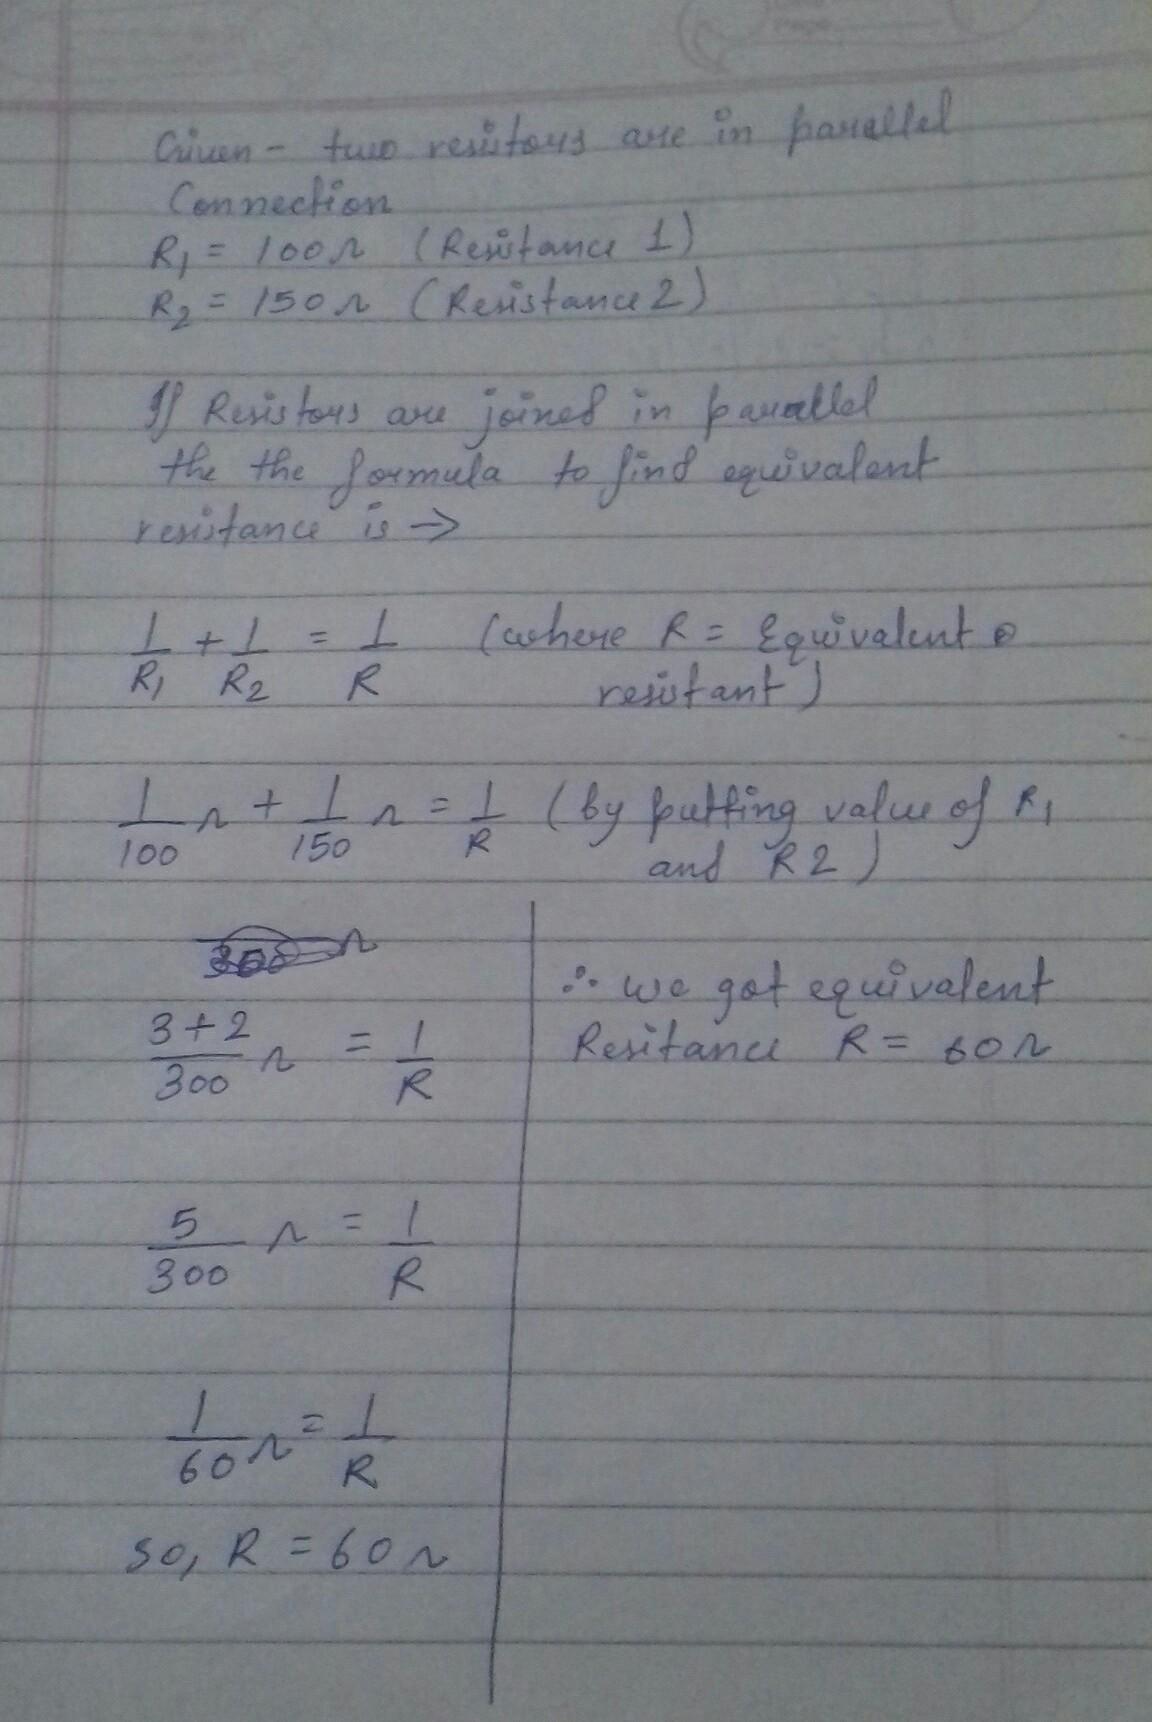 Given - two resitors are in parallel
Connection
R1 = 100Ω (Resitance 1)
R2 = 150Ω (Resistance 2)
If Resistors are joined in parallel
the the formula to find equivalent
resistance is →
1/R1 + 1/R2 = 1/R (where R = Equivalent
resistant)
1/100 Ω + 1/150 Ω = 1/R (by putting value of R1
and R2)
Ω
3+2/300 Ω = 1/R
5/300 Ω = 1/R
1/60 Ω = 1/R
so, R = 60Ω
∴ we got equivalent
Resitance R = 60Ω